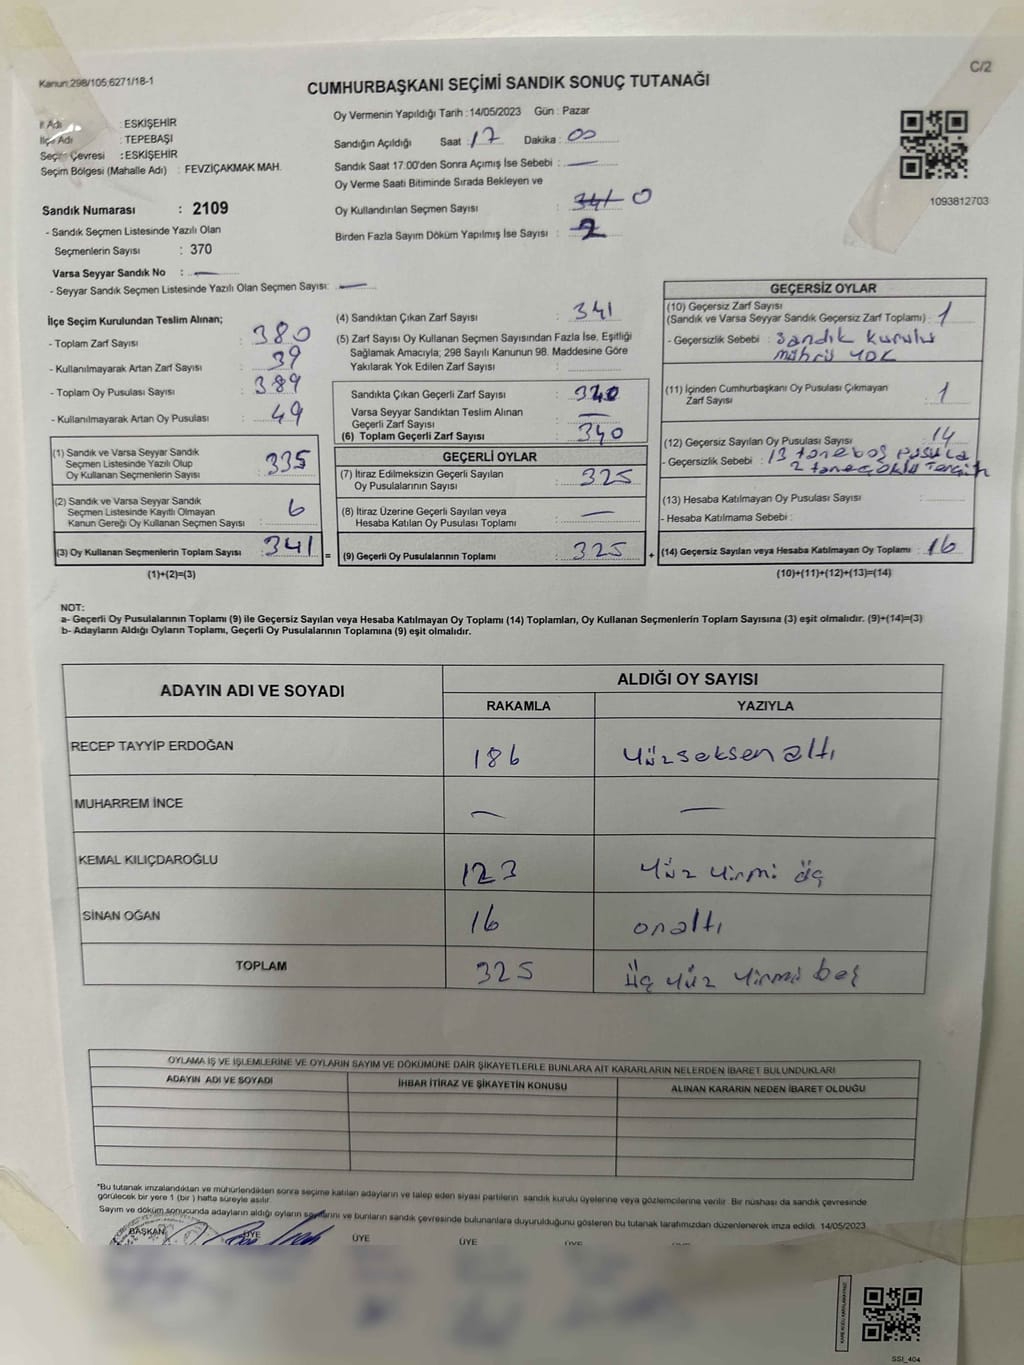 Kanun:298/105;6271/18-1
C/2
CUMHURBAŞKANI SEÇİMİ SANDIK SONUÇ TUTANAĞI
İl Adı : ESKİŞEHİR
İlçe Adı : TEPEBAŞI
Seçim Çevresi : ESKİŞEHİR
Seçim Bölgesi (Mahalle Adı) : FEVZİÇAKMAK MAH.
Sandık Numarası : 2109
- Sandık Seçmen Listesinde Yazılı Olan
Seçmenlerin Sayısı : 370
Varsa Seyyar Sandık No : —
- Seyyar Sandık Seçmen Listesinde Yazılı Olan Seçmen Sayısı: —
Oy Vermenin Yapıldığı Tarih : 14/05/2023 Gün : Pazar
Sandığın Açıldığı Saat : 17 Dakika : 00
Sandık Saat 17.00'den Sonra Açımış İse Sebebi : —
Oy Verme Saati Bitiminde Sırada Bekleyen ve
Oy Kullandırılan Seçmen Sayısı : 341 0
Birden Fazla Sayım Döküm Yapılmış İse Sayısı : 2
1093812703
İlçe Seçim Kurulundan Teslim Alınan;
- Toplam Zarf Sayısı : 380
- Kullanılmayarak Artan Zarf Sayısı : 39
- Toplam Oy Pusulası Sayısı : 389
- Kullanılmayarak Artan Oy Pusulası : 49
(1) Sandık ve Varsa Seyyar Sandık
Seçmen Listesinde Yazılı Olup
Oy Kullanan Seçmenlerin Sayısı : 335
(2) Sandık ve Varsa Seyyar Sandık
Seçmen Listesinde Kayıtlı Olmayan
Kanun Gereği Oy Kullanan Seçmen Sayısı : 6
(3) Oy Kullanan Seçmenlerin Toplam Sayısı : 341
(1)+(2)=(3)
(4) Sandıktan Çıkan Zarf Sayısı : 341
(5) Zarf Sayısı Oy Kullanan Seçmen Sayısından Fazla İse, Eşitliği
Sağlamak Amacıyla; 298 Sayılı Kanunun 98. Maddesine Göre
Yakılarak Yok Edilen Zarf Sayısı :
Sandıkta Çıkan Geçerli Zarf Sayısı : 340
Varsa Seyyar Sandıktan Teslim Alınan
Geçerli Zarf Sayısı : —
(6) Toplam Geçerli Zarf Sayısı : 340
GEÇERLİ OYLAR
(7) İtiraz Edilmeksizin Geçerli Sayılan
Oy Pusulalarının Sayısı : 325
(8) İtiraz Üzerine Geçerli Sayılan veya
Hesaba Katılan Oy Pusulası Toplamı : —
= (9) Geçerli Oy Pusulalarının Toplamı : 325 +
GEÇERSİZ OYLAR
(10) Geçersiz Zarf Sayısı
(Sandık ve Varsa Seyyar Sandık Geçersiz Zarf Toplamı) : 1
- Geçersizlik Sebebi : Sandık kurulu
mührü yok
(11) İçinden Cumhurbaşkanı Oy Pusulası Çıkmayan
Zarf Sayısı : 1
(12) Geçersiz Sayılan Oy Pusulası Sayısı : 14
- Geçersizlik Sebebi : 13 tane boş pusula
2 tane çoklu tercih
(13) Hesaba Katılmayan Oy Pusulası Sayısı :
- Hesaba Katılmama Sebebi :
(14) Geçersiz Sayılan veya Hesaba Katılmayan Oy Toplamı : 16
(10)+(11)+(12)+(13)=(14)
NOT:
a- Geçerli Oy Pusulalarının Toplamı (9) ile Geçersiz Sayılan veya Hesaba Katılmayan Oy Toplamı (14) Toplamları, Oy Kullanan Seçmenlerin Toplam Sayısına (3) eşit olmalıdır. (9)+(14)=(3)
b- Adayların Aldığı Oyların Toplamı, Geçerli Oy Pusulalarının Toplamına (9) eşit olmalıdır.
ADAYIN ADI VE SOYADI
ALDIĞI OY SAYISI
RAKAMLA YAZIYLA
RECEP TAYYİP ERDOĞAN 186 Yüzseksen altı
MUHARREM İNCE — —
KEMAL KILIÇDAROĞLU 123 Yüz Yirmi üç
SİNAN OĞAN 16 onaltı
TOPLAM 325 üç yüz yirmi beş
OYLAMA İŞ VE İŞLEMLERİNE VE OYLARIN SAYIM VE DÖKÜMÜNE DAİR ŞİKAYETLERLE BUNLARA AİT KARARLARIN NELERDEN İBARET BULUNDUKLARI
ADAYIN ADI VE SOYADI İHBAR İTİRAZ VE ŞİKAYETİN KONUSU ALINAN KARARIN NEDEN İBARET OLDUĞU
*Bu tutanak imzalandıktan ve mühürlendikten sonra seçime katılan adayların ve talep eden siyasi partilerin sandık kurulu üyelerine veya gözlemcilerine verilir. Bir nüshası da sandık çevresinde
görülecek bir yere 1 (bir) hafta süreyle asılır.
Sayım ve döküm sonucunda adayların aldığı oyların sayılarını ve bunların sandık çevresinde bulunanlara duyurulduğunu gösteren bu tutanak tarafımızdan düzenlenerek imza edildi. 14/05/2023
BAŞKAN ÜYE ÜYE ÜYE ÜYE
SSI_404